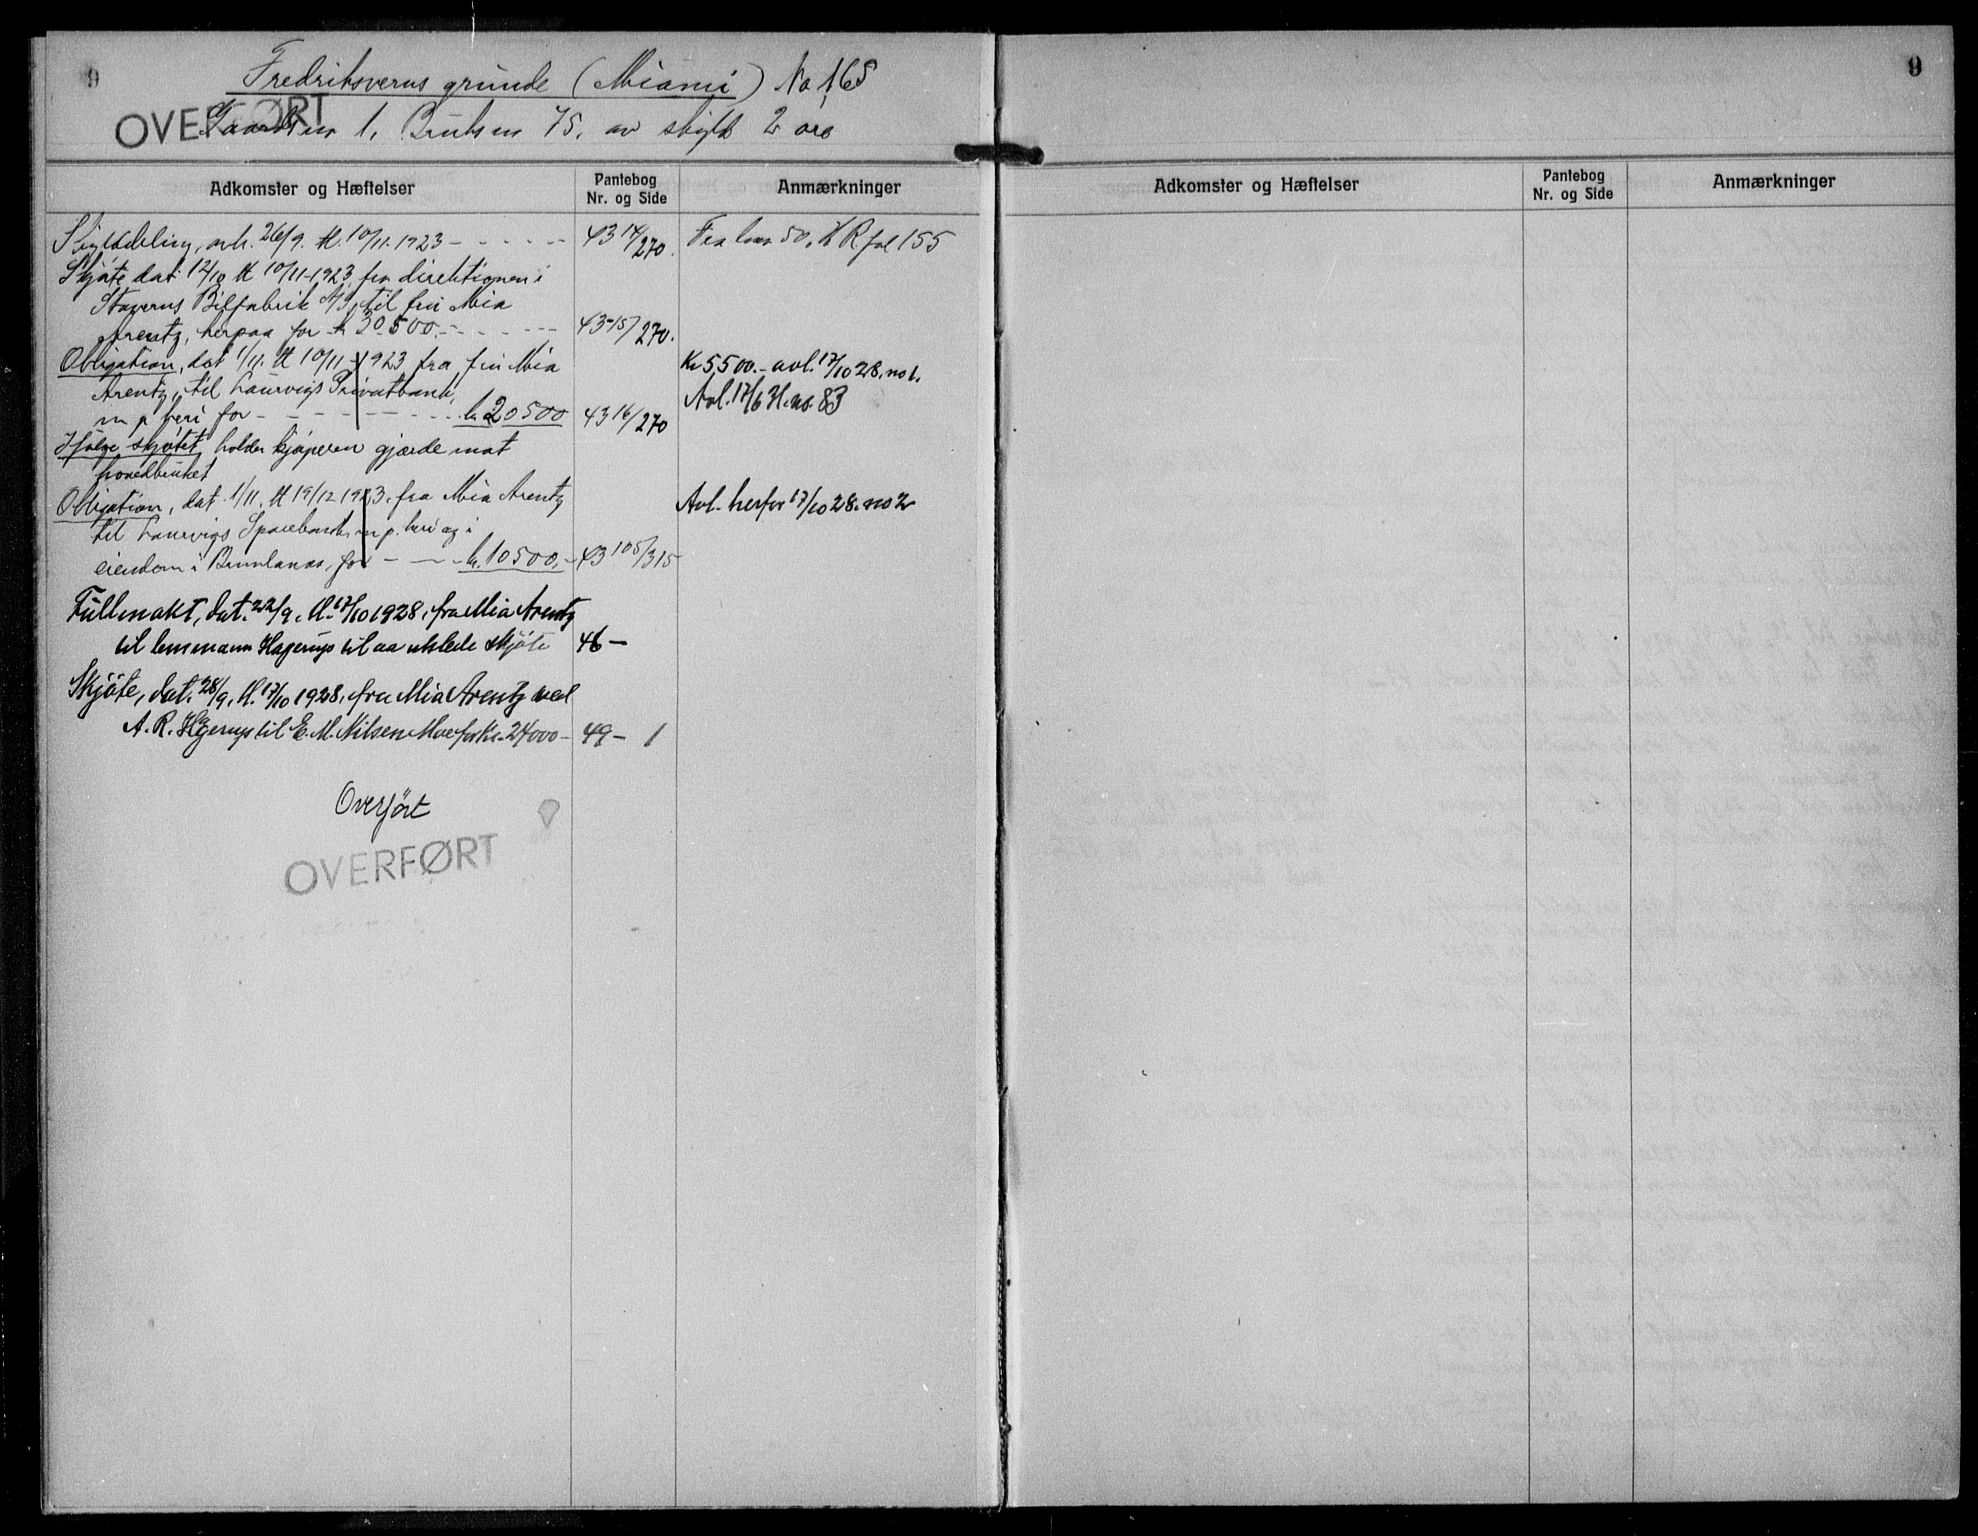 9
Fredriksverns grunde (Miami) No 165
OVERFØRT
Gaardsnr 1, Bruksnr 75, av skyld 2 øre
Adkomster og Hæftelser
Pantebog
Nr. og Side
Anmærkninger
Skylddeling, avh. 26/9. tl. 10/11. 1923 - - - - - -
43 14/270.
Fra bno 50, PR fol 155
Skjøte dat 12/10 tl 10/11-1923, fra direktionen i
Staverns Bilfabrik A/S, til fru Mia
Arentz, herpaa for kr 30500.- - - - -
43-15/270.
Obligation, dat 1/11. tl 10/11-1923 fra fru Mia
Arentz, til Laurvigs Privatbank,
m p heri, for - - - - - - - - kr. 20500
43 16/270
Kr 5500.- avl. 17/10 28. no 1.
Avl. 17/6 31. no. 83
Ifølge skjøtet holder kjøperen gjærde mot
hovedbruket
Obligation, dat. 1/11. tl 19/12 1923. fra Mia Arentz
til Laurvigs Sparebank, m p. heri og i
eiendom i Brunlanes, for - - - kr. 10500.-
43 105/315
Avl. herfor 17/10 28. no 2
Fullmakt, dat. 22/9. tl. 17/10 1928, fra Mia Arentz
til lensmann Hagerup til aa utstede skjøte
46 -
Skjøte, dat. 28/9. tl. 17/10 1928, fra Mia Arentz ved
A. R. Hagerup til E. M. Nilsen Moe for Kr. 24000-
49- 1
Overført
OVERFØRT
9
Adkomster og Hæftelser
Pantebog
Nr. og Side
Anmærkninger